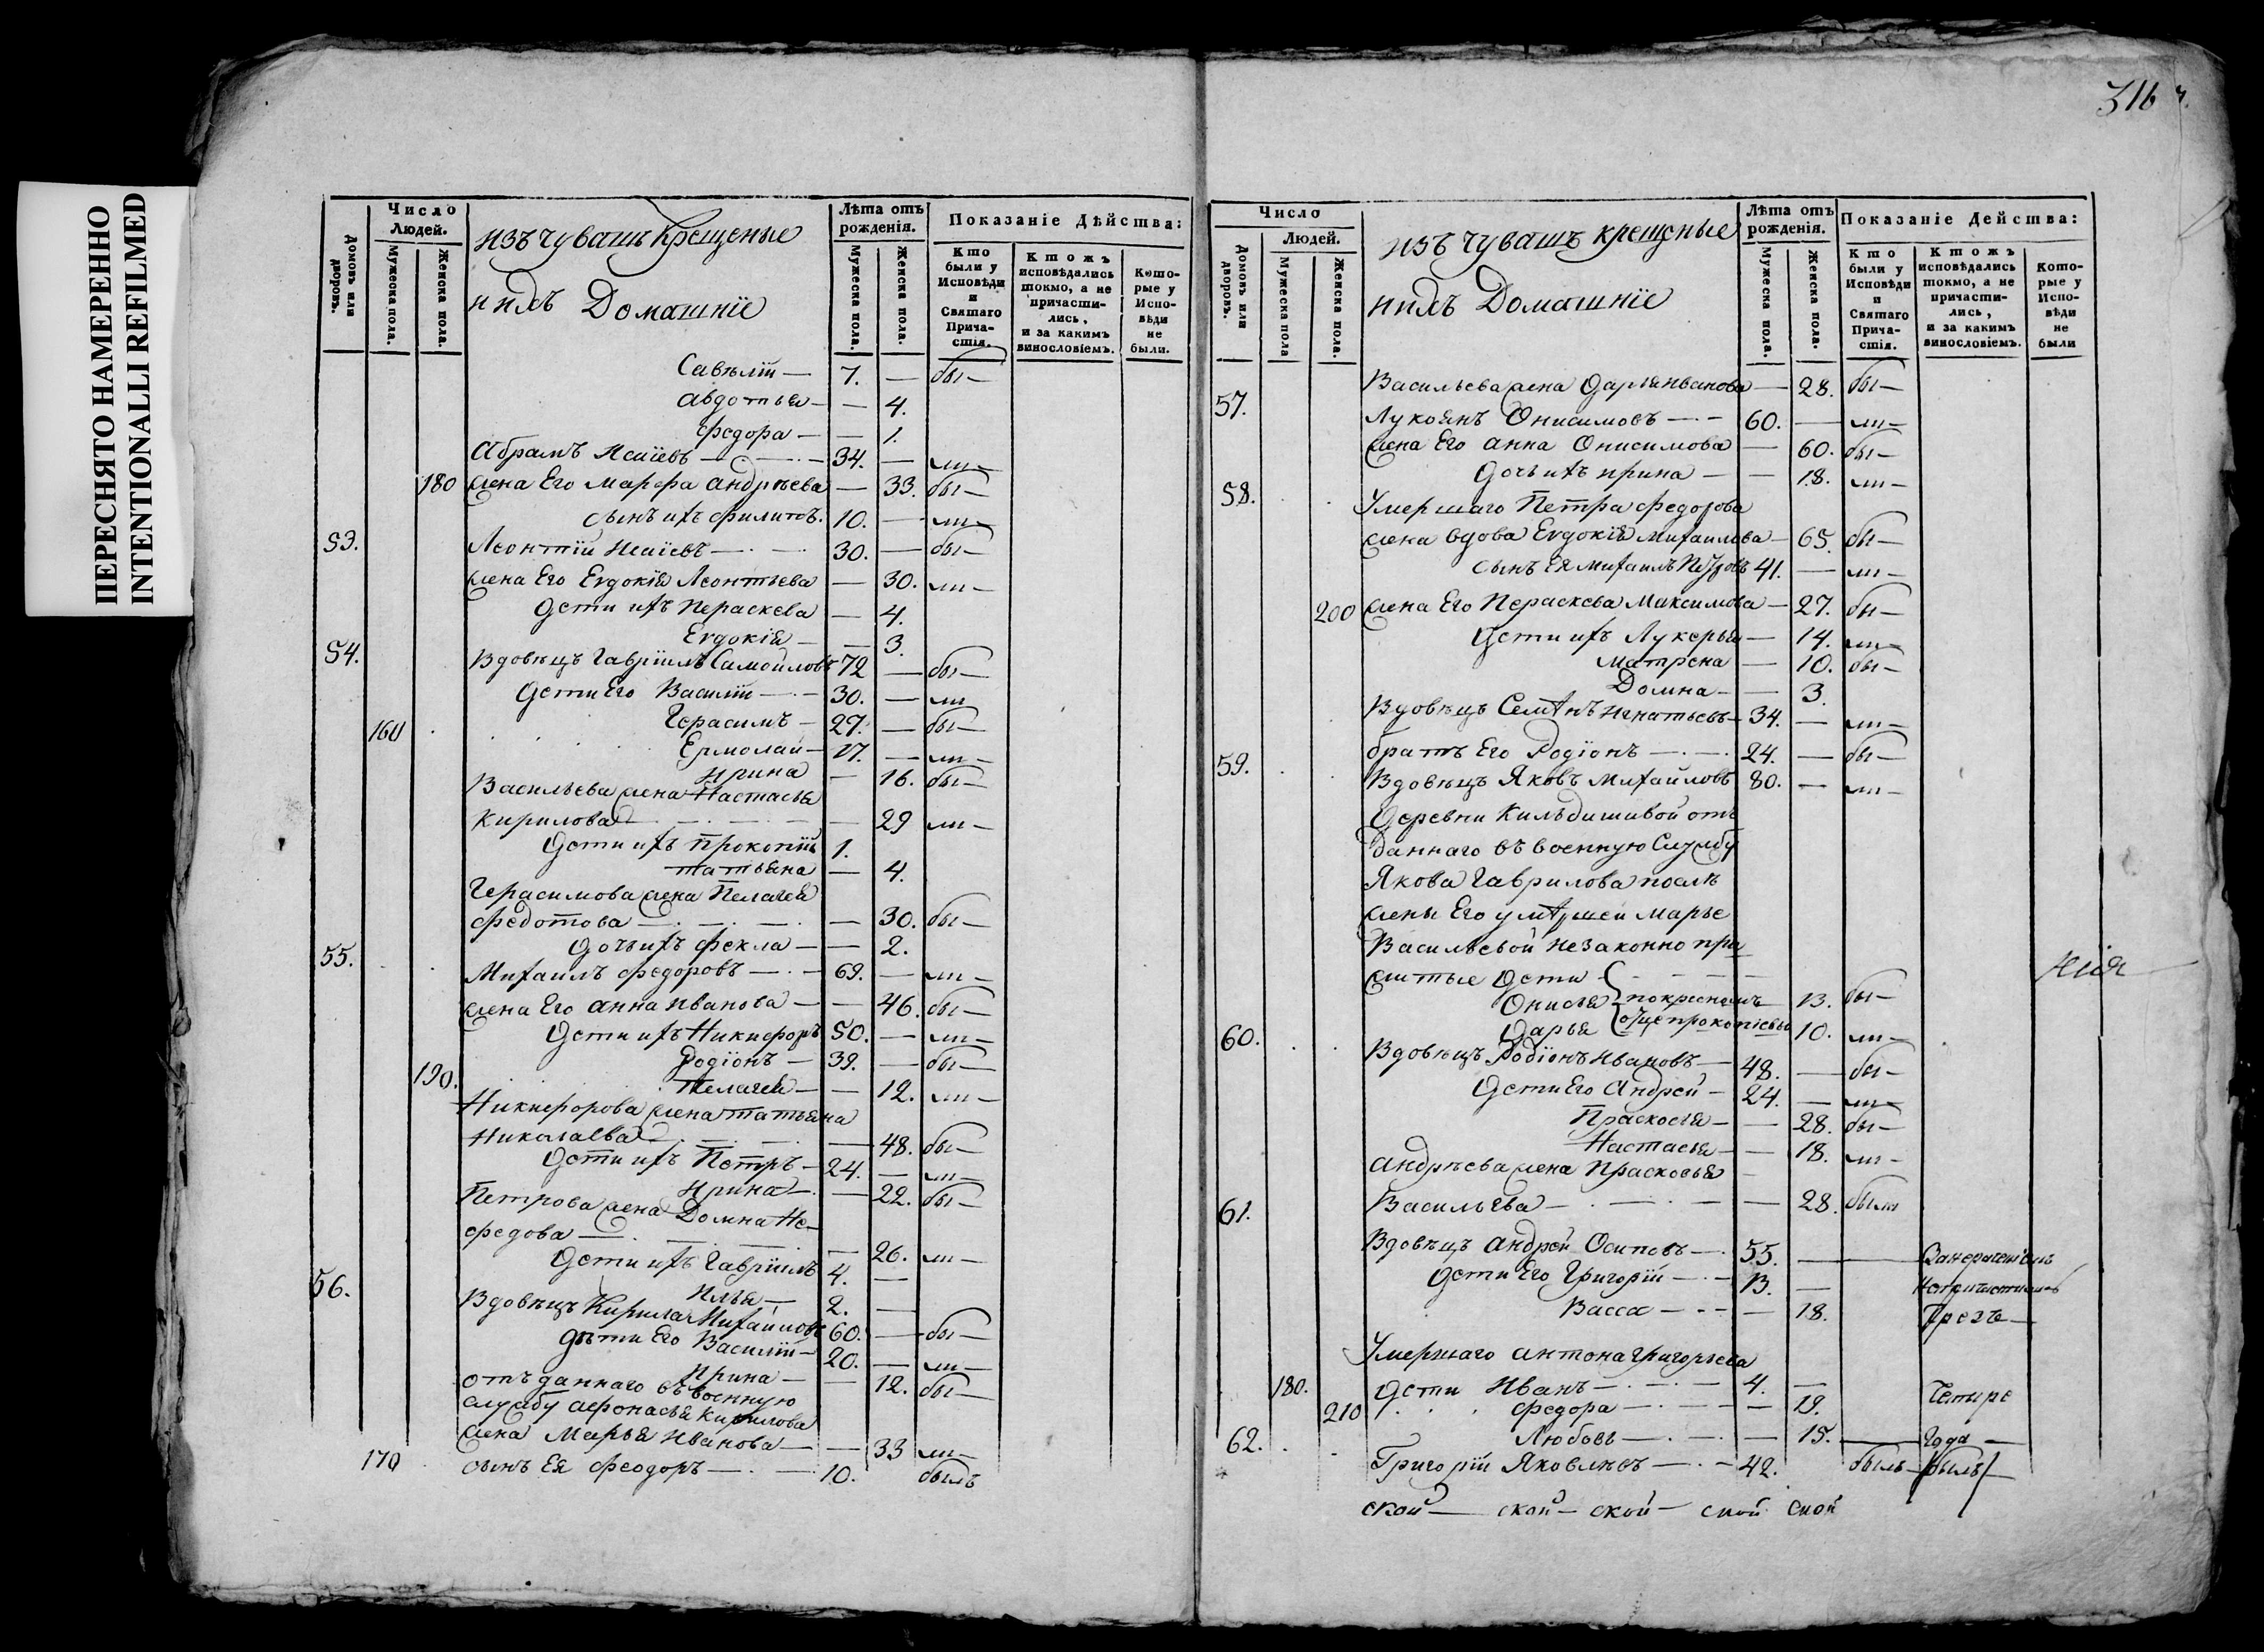 ПЕРЕСНЯТО НАМЕРЕННО
INTENTIONALLI REFILMED
316
Число Людей.
Лѣта отъ рожденія.
Показаніе Дѣйства:
Домовъ или дворовъ.
Мужеска пола.
Женска пола.
изъ чувашъ крещеные
и ихъ Домашніе
Мужеска пола.
Женска пола.
Кто были у Исповѣди и Святаго Причастія.
Ктожъ исповѣдались токмо, а не причастились, и за какимъ винословіемъ.
Которые у Исповѣди не были.
Савелій — 7. — бы—
Авдотья — — 4.
Федора — — 1.
Абрамъ Исаіевъ — 34. — ли—
180 жена Его Марфа Андрѣева — 33. бы—
сынъ ихъ Филипъ. 10. — ли—
53. Леонтій Исаіевъ — 30. — бы—
жена Его Евдокія Леонтьева — 30. ли—
дети ихъ Пераскева — 4.
Евдокія — — 3.
54. Вдовецъ Гавріилъ Самойловъ 72 — бы—
дети Его Василій — 30. — ли
160 Герасимъ — 27. — бы—
Ермолай — 17. — ли—
Ирина — 16. бы—
Васильева жена Настасья
Кирилова — 29 ли—
дети ихъ Прокопій 1.
Татьяна — 4.
Герасимова жена Пелагея
Федотова — — 30. бы—
дочь ихъ Фекла — — 2.
55. Михаилъ Федоровъ — 69. — ли—
жена Его Анна Иванова — — 46. бы—
дети ихъ Никифоръ 50. — ли—
Родіонъ — 39. — бы—
190. Пелагея — — 12. ли—
Никифорова жена Татьяна
Николаева — 48. бы—
дети ихъ Петръ — 24. — ли—
Ирина — — 22. бы—
Петрова жена Домна Не-
федова — — 26. ли—
дети ихъ Гавріилъ 4. —
56. Илья — 2. —
Вдовецъ Кирила Михайловъ 60. — бы—
дѣти Его Василій — 20. — ли—
Ирина — — 12. бы—
отъданнаго въ военную
службу Афонасья Кирилова
жена Марья Иванова — — 33 ли—
170 сынъ Ея Феодоръ — 10. былъ
Число Людей.
Лѣта отъ рожденія.
Показаніе Дейсmва:
Домовъ или дворовъ.
Мужеска пола
Женска пола.
изъ чувашъ крещеные
и ихъ Домашніе
Мужеска пола.
Женска пола.
Кто были у Исповѣди и Святаго Причастія.
Ктожъ исповѣдались токмо, а не причастились, и за какимъ винословіемъ.
Которые у Исповѣди не были
Васильева жена Дарья Иванова — 28. бы—
57. Лукоянъ Онисимовъ — 60. — ли—
жена Его Анна Онисимова — 60. бы—
дочь ихъ Ирина — — 18. ли—
58. Умершаго Петра Федорова
жена вдова Евдокія Михаилова — 65. бы—
сынъ Ея Михаилъ Петровъ 41. — ли—
200 жена Его Пераскева Максимова — 27. бы—
дети ихъ Лукерья — 14. ли—
Матрена — 10. бы—
Домна — — 3.
Вдовецъ Семенъ Игнатьевъ — 34. — ли—
братъ Его Родіонъ — 24. — бы—
59. Вдовецъ Яковъ Михайловъ 80. — ли—
Деревни Кильдишивой отъ
даннаго въ военную службу
Якова Гаврилова послѣ
жены Его умершей Марье
Васильевой незаконно при
житые дети
Онисья покресномъ 13. бы—
Дарья отце Прокопіевы 10. ли—
60. Вдовецъ Родіонъ Ивановъ — 48. — бы—
дети Его Андрей — 24. — ли—
Прасковья — — 28. бы—
Настасья — — 18. ли—
Андрѣева жена Прасковья
61. Васильева — — 28. были
Вдовецъ Андрей Осиповъ — 55. —
дети Его Григорій — 13. —
Васса — — 18.
Умершаго Антона Григорьева
180. дети Иванъ — 4. — Четыре
210 Федора — — 19.
Любовь — — 15. — Года —
62. Григорій Яковлевъ — 42. былъ былъ
ской — ской — ской — ской ской